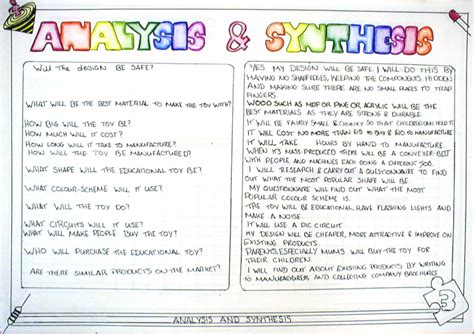 ANALYSIS & SYNTHESIS
Will The design BE SAFE?
WHAT WILL BE THE BEST MATERIAL TO MAKE THE TOY WITH?
HOW BIG WILL THE TOY BE?
HOW MUCH WILL IT COST?
HOW LONG WILL IT TAKE TO MANUFACTURE?
HOW WILL THE TOY BE MANUFACTURED?
WHAT SHAPE WILL THE EDUCATIONAL TOY BE?
WHAT COLOUR-SCHEME WILL IT USE?
WHAT WILL THE TOY DO?
WHAT CIRCUITS WILL IT USE?
WHAT WILL MAKE PEOPLE BUY THE TOY?
WHO WILL PURCHASE THE EDUCATIONAL TOY?
ARE THERE SIMILAR PRODUCTS ON THE MARKET?
YES MY DESIGN WILL BE SAFE. I WILL DO THIS BY
HAVING NO SHARP EDGES, KEEPING THE COMPONENTS HIDDEN
AND MAKING SURE THERE ARE NO SMALL PLACES TO TRAP
FINGERS.
WOOD SUCH AS MDF OR PINE OR ACRYLIC WILL BE THE
BEST MATERIALS AS THEY ARE STRONG & DURABLE.
IT WILL BE FAIRLY SMALL & CHUNKY SO THAT CHILDREN CAN HOLD IT.
IT WILL COST NO MORE THAN TO BUY & TO MANUFACTURE
IT WILL TAKE HOURS BY HAND TO MANUFACTURE
WHEN IT'S MASS PRODUCED THERE WILL BE A CONVEYER-BELT
WITH PEOPLE AND MACHINES EACH DOING A DIFFERENT JOB.
I WILL RESEARCH & CARRY OUT A QUESTIONNAIRE TO FIND
OUT WHAT THE MOST POPULAR SHAPE WILL BE
MY QUESTIONNAIRE WILL FIND OUT WHAT THE MOST
POPULAR COLOUR SCHEME IS.
THE TOY WILL BE EDUCATIONAL, HAVE FLASHING LIGHTS AND
MAKE A NOISE.
IT WILL USE A PIC CIRCUIT
MY DESIGN WILL BE CHEAPER, MORE ATTRACTIVE & IMPROVE ON
EXISTING PRODUCTS.
PARENTS, ESPECIALLY MUMS WILL BUY THE TOY FOR
THEIR CHILDREN.
I WILL FIND OUT ABOUT EXISTING PRODUCTS BY WRITING
TO MANUFACTURERS AND COLLECTING COMPANY BROCHURES
3
ANALYSIS AND SYNTHESIS